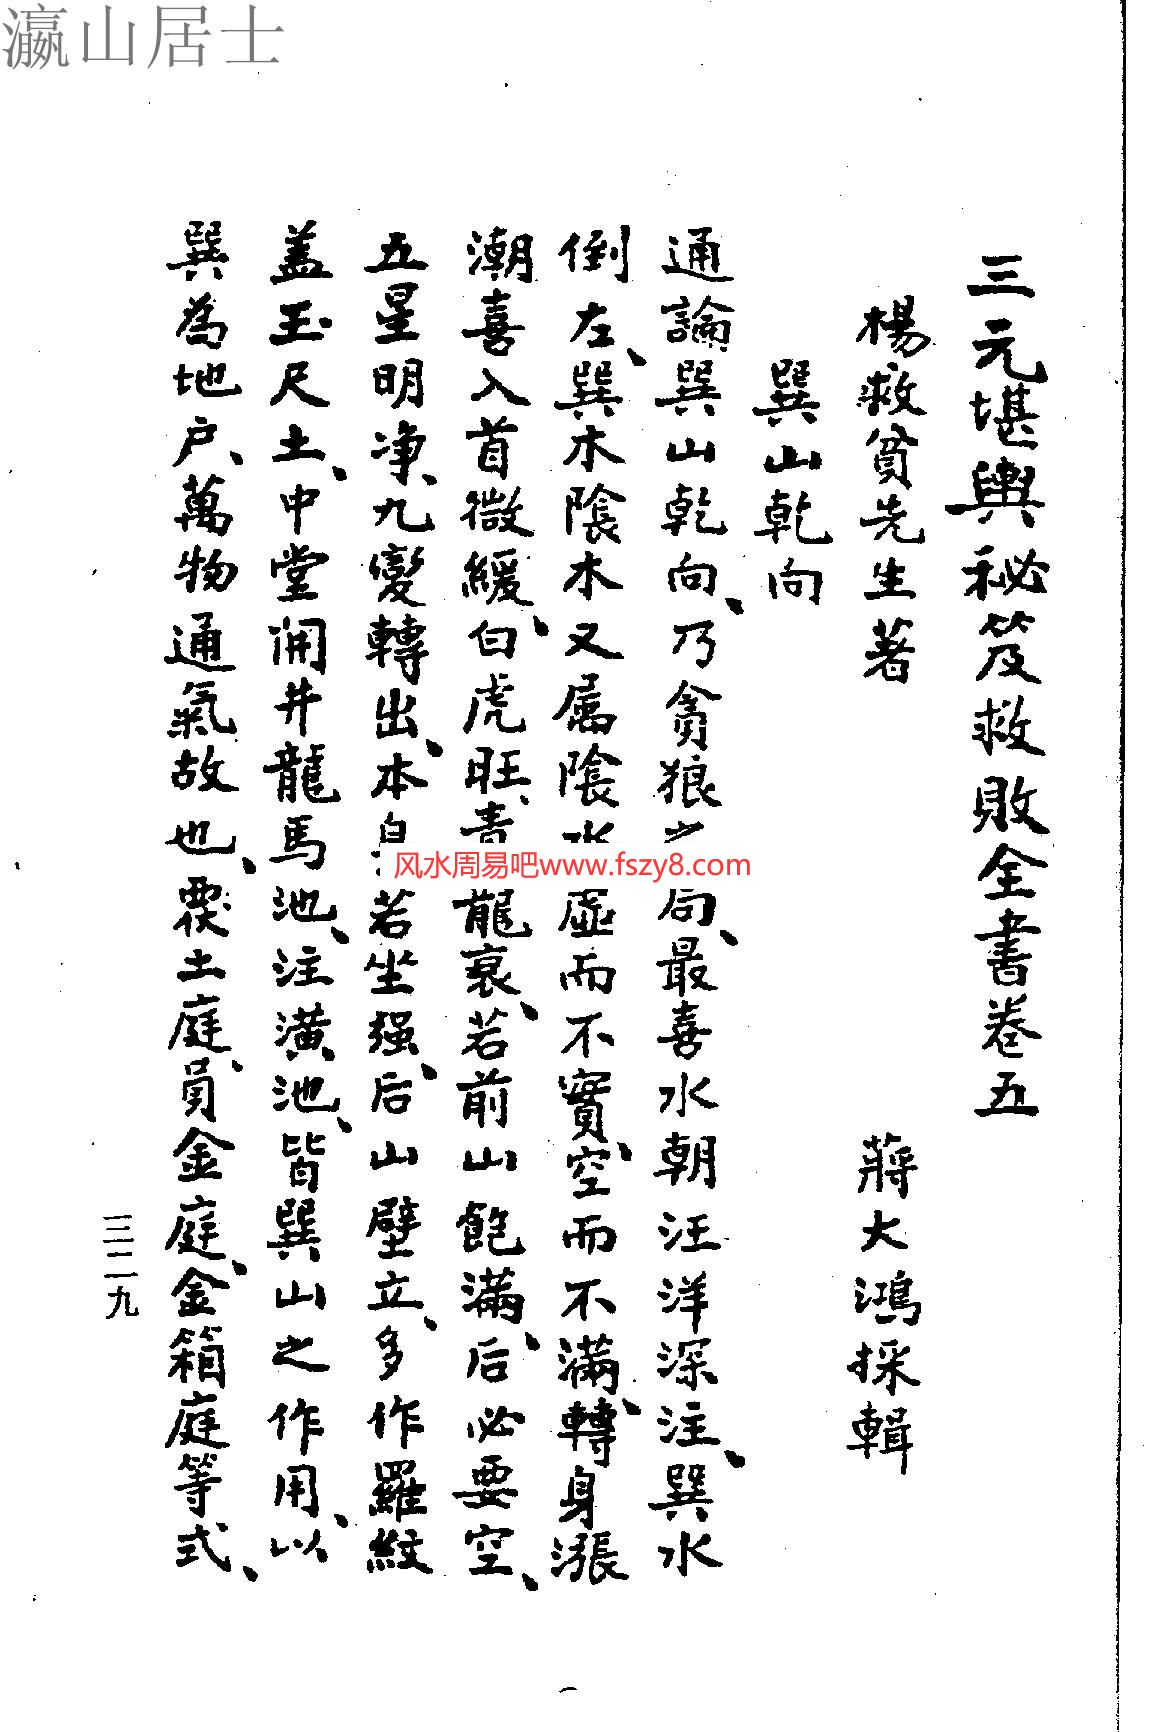 瀛山居士
三元堪輿秘笈救敗全書卷五
楊救貧先生著 蔣大鴻採輯
巽山乾向
通論巽山乾向、乃貪狼之局、最喜水朝汪洋深注、巽水
倒左、巽木陰木又属陰水虛而不實、空而不滿、轉身漲
潮喜入首微緩、白虎旺、青龍衰、若前山飽滿、后必要空、
五星明净、九變轉出、本身若坐强、后山壁立、多作羅紋
盖玉尺土、中堂開井龍馬池、注潢池、皆巽山之作用、以
巽為地户、萬物通氣故也、土庭、員金庭、金箱庭等式、
风水周易吧www.fszy8.com
三二九